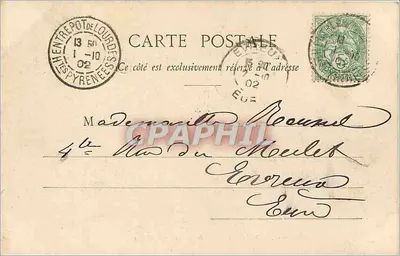 ENTREPOT DE LOURDES
13 50
1 -10
02
HTES PYRENEES
CARTE POSTALE
Ce côté est exclusivement réservé à l'adresse
EVREUX
-10
02
EURE
CPAPHIL
Mademoiselle
4te Rue du Meilet
Evreux
Eure